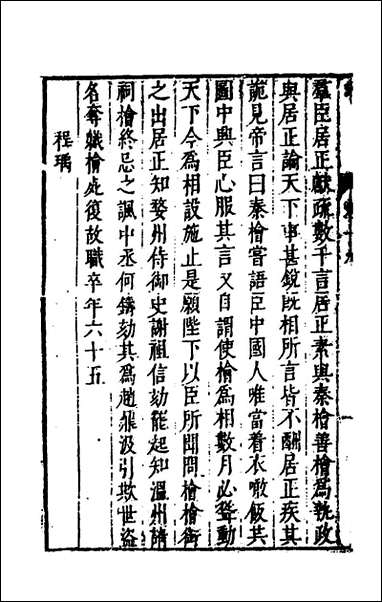 羣臣居正獻疏數千言居正素與秦檜善檜爲執政
與居正論天下事甚銳既相所言皆不酬居正疾其
詭見帝言曰秦檜嘗語臣中國人唯當着衣噉飯共
圖中興臣心服其言又自謂使檜爲相數月必聳動
天下今爲相設施止是願陛下以臣所聞問檜檜銜
之出居正知婺州侍御史謝祖信劾罷起知溫州請
祠檜終忌之諷中丞何鑄劾其爲趙鼎汲引欺世盜
名奪職檜死復故職卒年六十五
程瑀